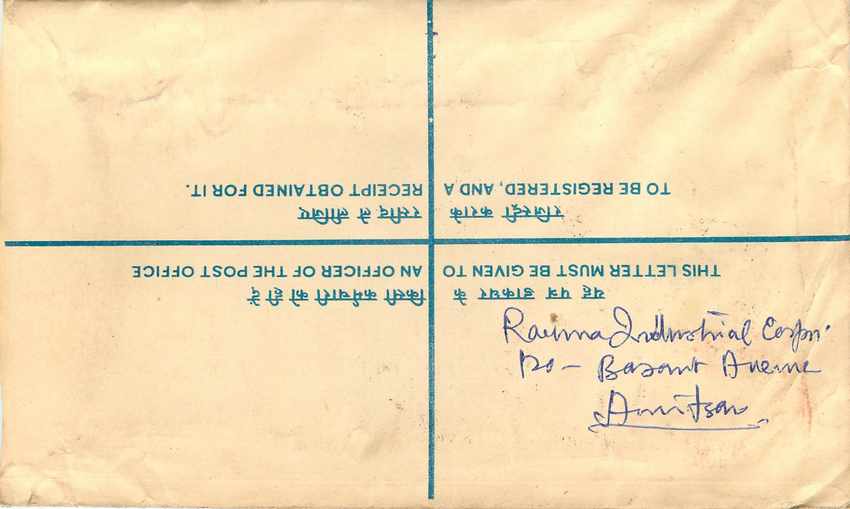 यह पत्र डाकघर के किसी कर्मचारी को ही दें
THIS LETTER MUST BE GIVEN TO AN OFFICER OF THE POST OFFICE
रजिस्ट्री कराके रसीद ले लीजिए
TO BE REGISTERED, AND A RECEIPT OBTAINED FOR IT.
Industrial Corpn.
120 - Basant Avenue
Amritsar